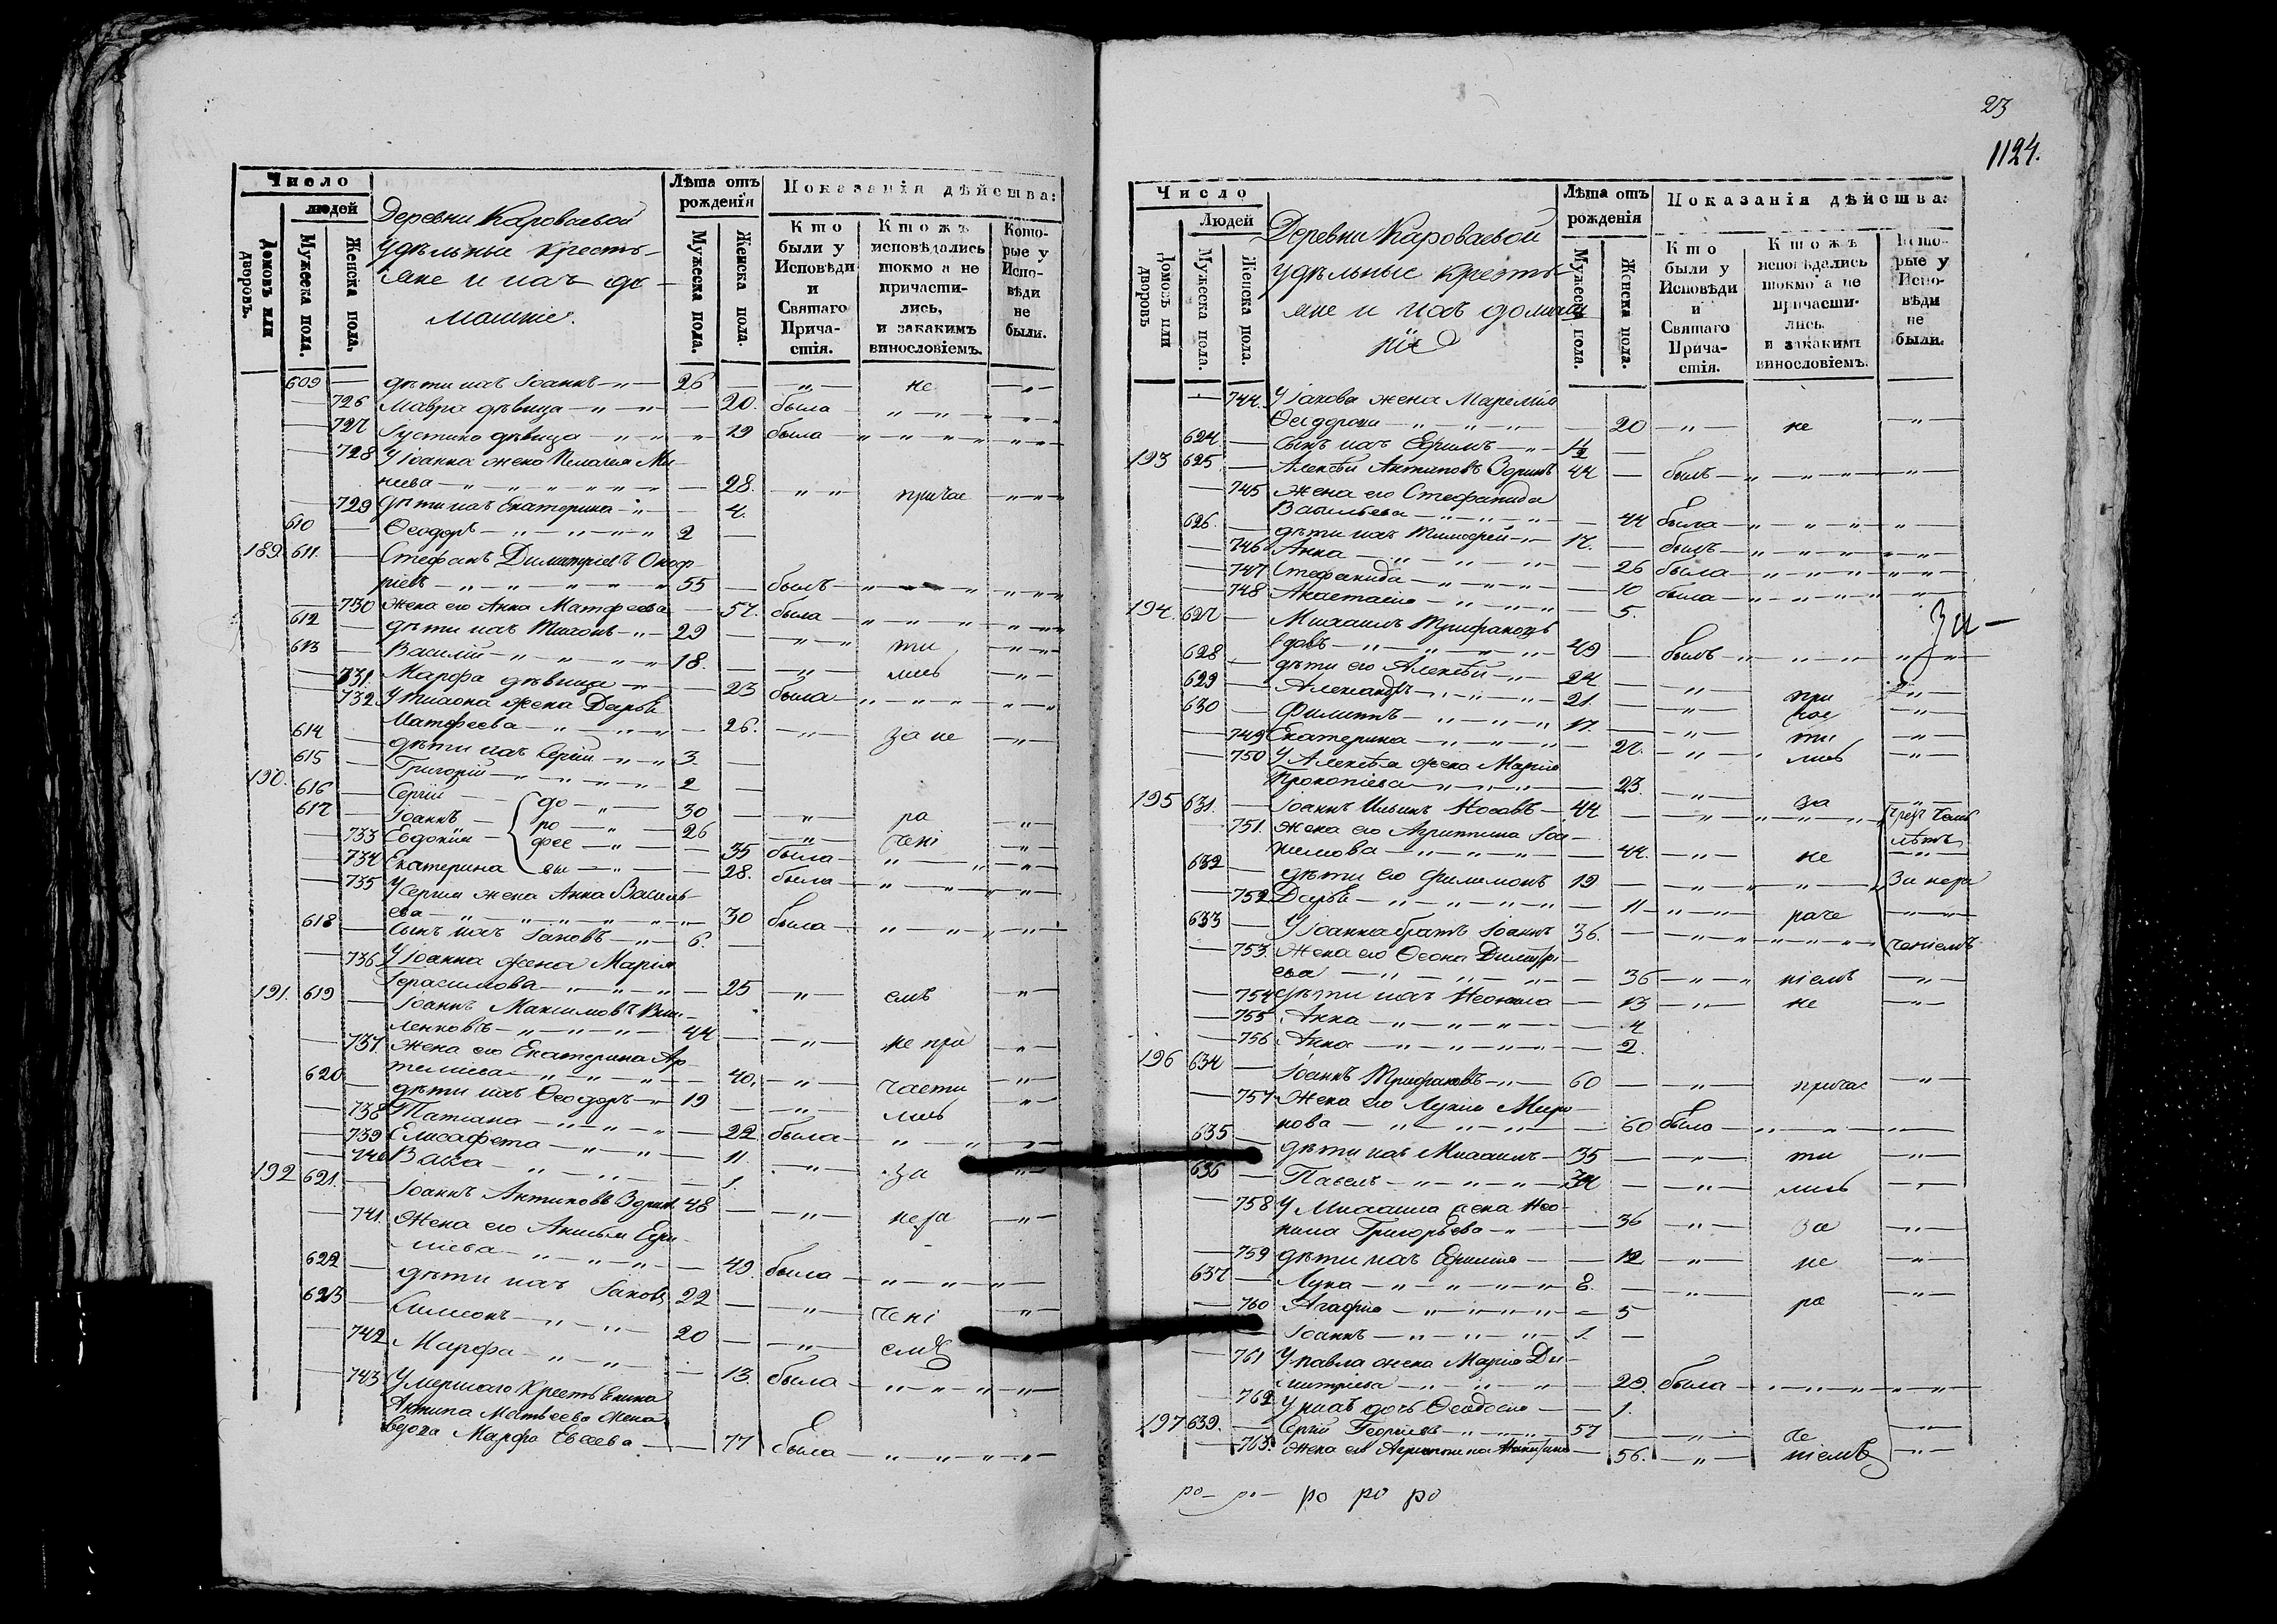 Число
людей
Домовъ или дворовъ.
Мужеска пола.
Женска пола.
Деревни Кароваевой
Удѣльные кресть-
яне и ихъ до-
машніе.
Лѣта отъ рожденія
Мужеска пола.
Женска пола.
Показанія дѣйства:
Кто были у Исповѣди и Святаго Прича-стія.
Кто жъ исповѣдались токмо а не причасти-лись, и закакимъ винословіемъ.
Кото-рые у Испо-вѣди не были.
609 — дѣти ихъ Іоаннъ — 26 — " — не — "
— 726 Мавра дѣвица — 20. была
— 727 Іустина дѣвица — 19 была
— 728 У Іоанна жена Пелагея Ми-
неева — 28. — " — причас
— 729 дѣти ихъ Екатерина — 4.
610 — Ѳеодоръ — 2 —
189. 611. — Стефанъ Димитріевъ Оноф-
ріевъ — 55 — былъ
— 730 Жена его Анна Матѳеева — 57. была
612 — дѣти ихъ Тихонъ — 29 — " — ти
613 — Василій — 18. — " — лись
— 731. Марфа дѣвица — 23 была
— 732. У Тихона жена Дарья
Матѳеева — 26. — " — за не
614 — дѣти ихъ Сергій — 3.
615 — Григорій — 2 —
190. 616 — Сергій — до — 30 — " — ра
617 — Іоаннъ — ро — 26 — " — чені
— 733 Евдокія — фее — 35 была
— 734 Екатерина — вы — 28. была
— 735 У Сергія жена Анна Василь-
ева — 30 была
618 — Сынъ ихъ Іаковъ — 6. —
— 736 У Іоанна жена Марія
Герасимова — 25 — " — емъ
191. 619 — Іоаннъ Максимовъ
ленковъ — 44 — " — не при
— 737. Жена его Екатерина Ар-
темиева — 40. — " — части
620 — дѣти ихъ Ѳеодоръ — 19 — " — лись
— 738 Татіана — 22 была
— 739 Елисафета — 11. — " — за
— 740 Васса — 1.
192 621. — Іоаннъ Антиповъ 48 — " — нера
— 741. Жена его Акилина Ефи-
миева — 49. была
622 — дѣти ихъ Іаковъ 22 — " — чені
623 — Симеонъ — 20 — " — емъ
— 742 Марфа — 13. была
— 743 Умершаго Крестьянина
Антипа Матвеева жена
вдова Марфа Евсеева — 77 была
23
1124.
Число
Людей
Домовъ или дворовъ
Мужеска пола.
Женска пола.
Деревни Кароваевой
удѣльные кресть-
яне и ихъ домаш
ніе
Лѣта отъ рожденія
Мужеска пола.
Женска пола.
Показанія дѣйства:
Кто были у Исповѣди и Святаго Прича-стія.
Кто жъ исповѣдались токмо а не причасти-лись. и закакимъ винословіемъ.
Кото-рые у Испо-вѣди не были.
— 744. У Іакова жена Маремія
Ѳеодорова — 20 — " — не — "
624. — Сынъ ихъ Ефимъ — 1/2 —
193 625. — Алексѣй Антиповъ 44 — былъ
— 745 Жена его Стефанида
Васильева — 44 была
626. — дѣти ихъ Тимофей — 17. — былъ
— 746 Анна — 26 была
— 747 Стефанида — 10 была
— 748 Анастасія — 5.
194. 627 — Михаилъ Трифановъ
вдовъ — 49 — былъ
628 — дѣти его Алексѣй — 24 — " — при
629 — Александръ — 21. — " — час
630 — Филиппъ — 17. — " — ти
— 749 Екатерина — 27. — " — лись
— 750 У Алексѣя жена Марія
Прокопіева — 23. — " — за
195 631. — Іоаннъ Ильинъ Носовъ — 44
— 751. Жена его Агриппина Іоа-
кимова — 44. — " — не
лѣтъ
632 — дѣти его Филимонъ 19 — За нера
— 752 Дарья — 11 — " — раче
633 — У Іоанна братъ Іоаннъ 36. — ченіемъ
— 753. Жена его Ѳеона Димитрі-
ева — 36 — " — ніемъ — "
— 754 дѣти ихъ Неонила — 13 — " — не — "
— 755 Анна — 4
— 756 Анна — 2.
196 634 — Іоаннъ Трифановъ — 60 — " — причас — "
— 757 Жена его Лукія Миро-
нова — 60 была
635 — дѣти ихъ Михаилъ — 35 — " — ти — "
636 — Павелъ — 34 — " — лись — "
— 758 У Михаила жена Нео-
нила Григорьева — 36 — " — за — "
— 759 дѣти ихъ Ефимія — 12 — " — не — "
637 — Лука — 8. — " — ра — "
— 760 Агафія — 5
— Іоаннъ — 1. —
— 761 У Павла жена Марія Ди-
митріева — 29. была
— 762 У нихъ дочь Ѳеодосія — 1.
197 639. — Сергій Георгіевъ — 57 — " — че — "
— 763. Жена его Агриппина — 56. — " — ніемъ — "
ро — ро — ро ро ро